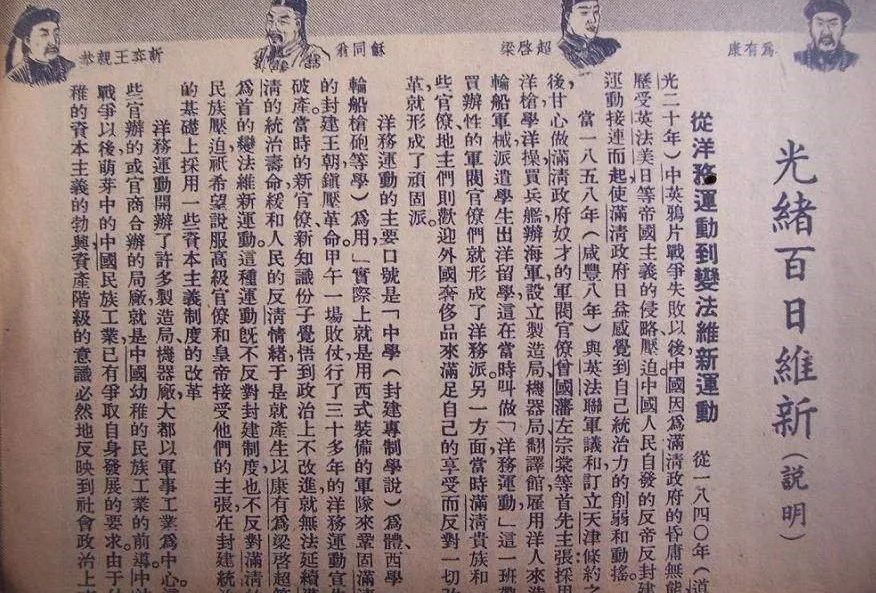 康有爲
梁啓超
翁同龢
恭親王奕訢
光緒百日維新(說明)
從洋務運動到變法維新運動 從一八四〇年(道
光二十年)中英鴉片戰爭失敗以後,中國因爲滿清政府的昏庸無能
歷受英法美日等帝國主義的侵略壓迫,中國人民自發的反帝反封建
運動接連而起,使滿清政府日益感覺到自己統治力的削弱和動搖。
當一八五八年(咸豐八年)與英法聯軍議和訂立天津條約之
後,甘心做滿清政府奴才的軍閥官僚曾國藩、左宗棠等首先主張採用
洋槍、學洋操、買兵艦、辦海軍、設立製造局、機器局、翻譯館、雇用洋人來
輪船軍械,派遣學生出洋留學,這在當時叫做「洋務運動」。這一班
買辦性的軍閥官僚們就形成了洋務派。另一方面,當時滿清貴族和
些官僚、地主們則歡迎外國奢侈品來滿足自己的享受,而反對一切
革,就形成了頑固派。
洋務運動的主要口號是「中學(封建專制學說)爲體,西學
輪船槍砲等學)爲用」,實際上就是用西式裝備的軍隊來鞏固滿清
的封建王朝,鎭壓革命。甲午一場敗仗,行了三十多年的洋務運動宣告
破產。當時的新官僚、新知識份子覺悟到政治上不改進,就無法延續滿
清的統治壽命,緩和人民的反清情緒,于是就產生以康有爲、梁啓超等
爲首的變法維新運動。這種運動旣不反對封建制度,也不反對滿清的
民族壓迫,祇希望說服高級官僚和皇帝接受他們的主張,在封建統治
的基礎上採用一些資本主義制度的改革。
洋務運動開辦了許多製造局、機器廠,大都以軍事工業爲中心
些官辦的或官商合辦的局廠,就是中國幼稚的民族工業的前導。中
戰爭以後,萌芽中的中國民族工業,已有爭取自身發展的要求。由于
稚的資本主義的勃興,資產階級的意識必然地反映到社會政治上